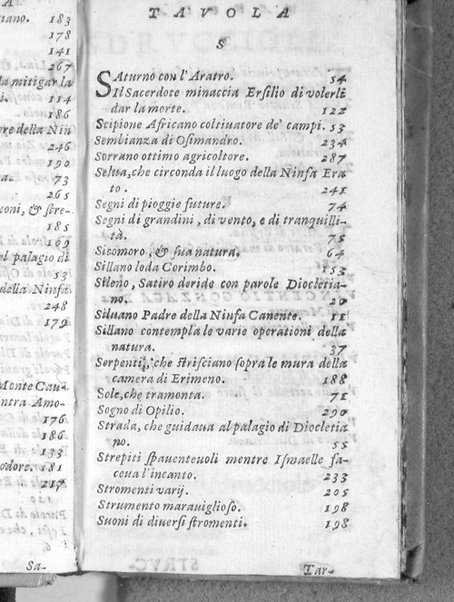 A
tano. 183
178
141
la mitigar la
i. 114
186
re della Nin
246
190
a. 73
265
coni, & stre-
185
169
el palagio di
53
della Ninfa
248
179
Monte Cau-
ntra Amo-
176
186
133
odore. 181
217
Sa-
TAVOLA
S
SAturno con l'Aratro. 54
Il Sacerdote minaccia Ersilio di volerli
dar la morte. 122
Scipione Africano coltiuatore de' campi. 53
Sembianza di Osimandro. 234
Sorrano ottimo agricoltore. 287
Selua, che circonda il luogo della Ninfa Era
to. 241
Segni di pioggie future. 74
Segni di grandini, di vento, e di tranquilli-
tà. 75
Sicomoro, & sua natura. 64
Sillano loda Corimbo. 153
Sileno, Satiro deride con parole Diocletia-
no. 20
Siluano Padre della Ninfa Canente. 11
Sillano contempla le varie operationi della
natura. 37
Serpenti, che strisciano sopra le mura della
camera di Erimeno. 188
Sole, che tramonta. 71
Sogno di Opilio. 290
Strada, che guidaua al palagio di Diocletia
no. 55
Strepiti spauenteuoli mentre Ismaelle fa-
ceua l'incanto. 233
Stromenti varij. 205
Strumento marauiglioso. 198
Suoni di diuersi stromenti. 198
Tar-